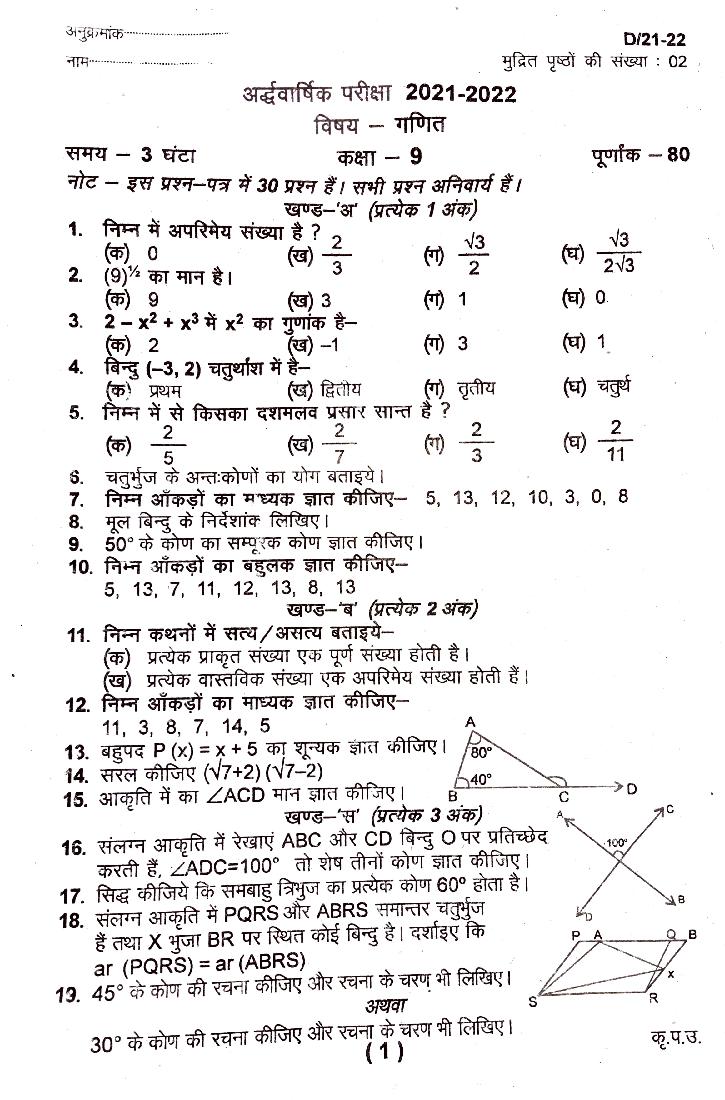 अनुक्रमांक
D/21-22
नाम
मुद्रित पृष्ठों की संख्या : 02
अर्द्धवार्षिक परीक्षा 2021-2022
विषय – गणित
समय – 3 घंटा कक्षा – 9 पूर्णांक – 80
नोट – इस प्रश्न–पत्र में 30 प्रश्न हैं। सभी प्रश्न अनिवार्य हैं।
खण्ड–'अ' (प्रत्येक 1 अंक)
1. निम्न में अपरिमेय संख्या है ?
(क) 0 (ख) 2/3 (ग) √3/2 (घ) √3/2√3
2. (9)^½ का मान है।
(क) 9 (ख) 3 (ग) 1 (घ) 0
3. 2 – x² + x³ में x² का गुणांक है–
(क) 2 (ख) –1 (ग) 3 (घ) 1
4. बिन्दु (–3, 2) चतुर्थांश में है–
(क) प्रथम (ख) द्वितीय (ग) तृतीय (घ) चतुर्थ
5. निम्न में से किसका दशमलव प्रसार सान्त है ?
(क) 2/5 (ख) 2/7 (ग) 2/3 (घ) 2/11
6. चतुर्भुज के अन्तःकोणों का योग बताइये।
7. निम्न आँकड़ों का मध्यक ज्ञात कीजिए– 5, 13, 12, 10, 3, 0, 8
8. मूल बिन्दु के निर्देशांक लिखिए।
9. 50° के कोण का सम्पूरक कोण ज्ञात कीजिए।
10. निम्न आँकड़ों का बहुलक ज्ञात कीजिए–
5, 13, 7, 11, 12, 13, 8, 13
खण्ड–'ब' (प्रत्येक 2 अंक)
11. निम्न कथनों में सत्य/असत्य बताइये–
(क) प्रत्येक प्राकृत संख्या एक पूर्ण संख्या होती है।
(ख) प्रत्येक वास्तविक संख्या एक अपरिमेय संख्या होती हैं।
12. निम्न आँकड़ों का माध्यक ज्ञात कीजिए–
11, 3, 8, 7, 14, 5
13. बहुपद P (x) = x + 5 का शून्यक ज्ञात कीजिए।
14. सरल कीजिए (√7+2) (√7–2)
15. आकृति में का ∠ACD मान ज्ञात कीजिए।
A
80°
40°
B C D
खण्ड–'स' (प्रत्येक 3 अंक)
16. संलग्न आकृति में रेखाएं ABC और CD बिन्दु O पर प्रतिच्छेद
करती हैं, ∠ADC=100° तो शेष तीनों कोण ज्ञात कीजिए।
A C
100°
D B
17. सिद्ध कीजिये कि समबाहु त्रिभुज का प्रत्येक कोण 60° होता है।
18. संलग्न आकृति में PQRS और ABRS समान्तर चतुर्भुज
हैं तथा X भुजा BR पर स्थित कोई बिन्दु है। दर्शाइए कि
ar (PQRS) = ar (ABRS)
P A Q B
X
S R
19. 45° के कोण की रचना कीजिए और रचना के चरण भी लिखिए।
अथवा
30° के कोण की रचना कीजिए और रचना के चरण भी लिखिए।
(1)
कृ.प.उ.